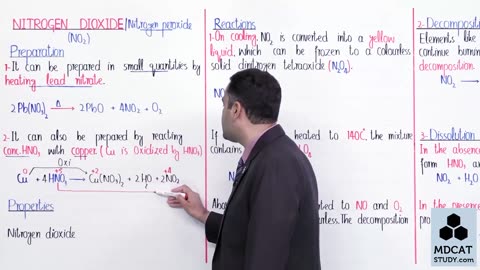 NITROGEN DIOXIDE/Nitrogen peroxide
(NO₂)
Preparation
1-It can be prepared in small quantities by
heating lead nitrate.
2Pb(NO₃)₂ →Δ 2PbO + 4NO₂ + O₂
2-It can also be prepared by reacting
conc.HNO₃ with copper (Cu is Oxidized by HNO₃)
Oxi
0 +5 +2 +4
Cu + 4HNO₃ → Cu(NO₃)₂ + 2H₂O + 2NO₂
Properties
Nitrogen dioxide
Reactions
1-On cooling, NO₂ is converted into a yellow
liquid, which can be frozen to a colourless
solid dinitrogen tetraoxide (N₂O₄).
If heated to 140C, the mixture
contains
to NO and O₂
The decomposition
2-Decomposit
Elements like
continue burnin
decomposition.
NO₂ →
3-Dissolution
In the absence
form HNO₂ an
NO₂ + H₂O
In the presenc
MDCAT
STUDY.com